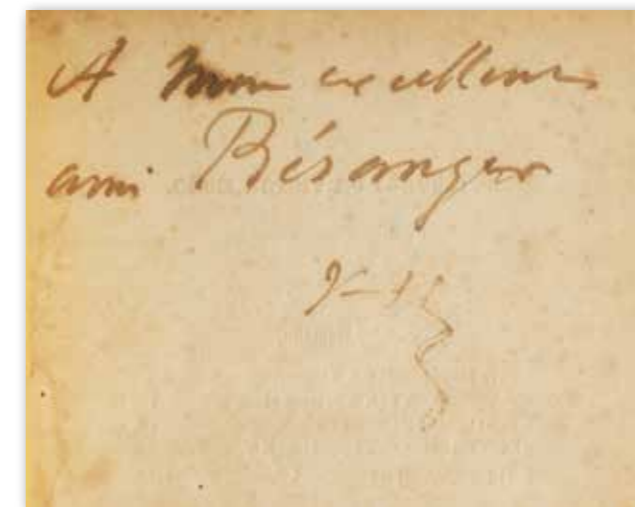 A mon excellent
ami Béranger